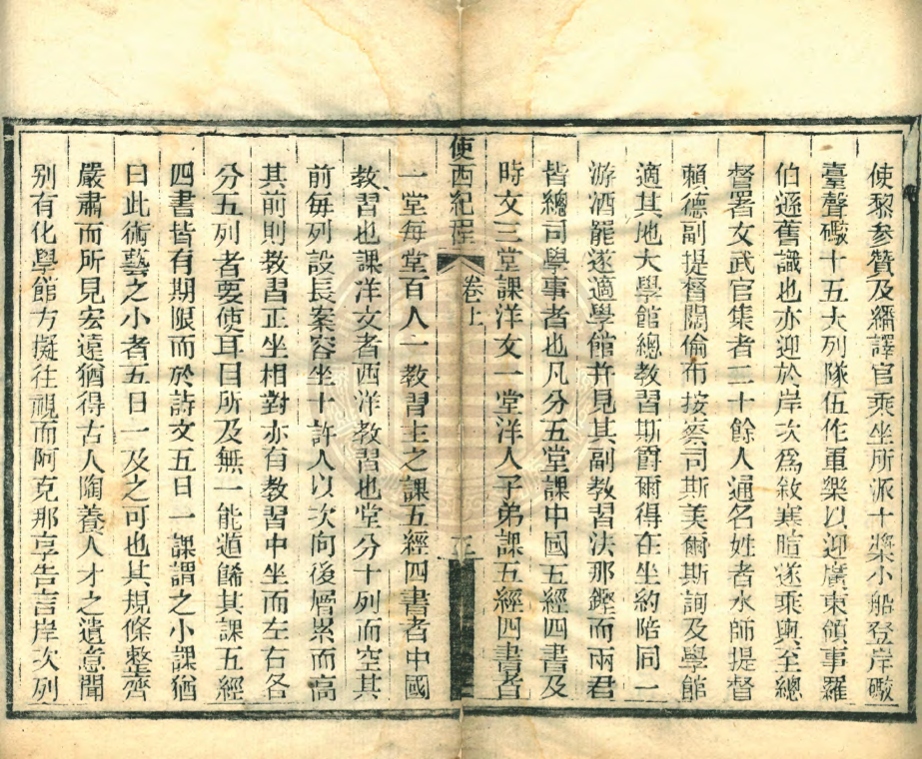 使黎參贊及繙譯官乘坐所派十槳小船登岸礮
臺聲礮十五大列隊伍作軍樂以迎廣東領事羅
伯遜舊識也亦迎於岸次爲敘寒暄遂乘輿至總
督署文武官集者二十餘人通名姓者水師提督
賴德副提督闊倫布按察司斯美爾斯詢及學館
適其地大學館總教習斯爵爾得在坐約陪同一
游酒罷遂適學館並見其副教習法那鏗而兩君
皆總司學事者也凡分五堂課中國五經四書及
時文三堂課洋文一堂洋人子弟課五經四書者
使西紀程
卷上
三
一堂每堂百人一教習主之課五經四書者中國
教習也課洋文者西洋教習也堂分十列而空其
前每列設長案容坐十許人以次向後層累而高
其前則教習正坐相對亦有教習中坐而左右各
分五列者要使耳目所及無一能遁飾其課五經
四書皆有期限而於詩文五日一課謂之小課猶
曰此術藝之小者五日一及之可也其規條整齊
嚴肅而所見宏遠猶得古人陶養人才之遺意聞
別有化學館方擬往視而阿克那亨告言岸次列